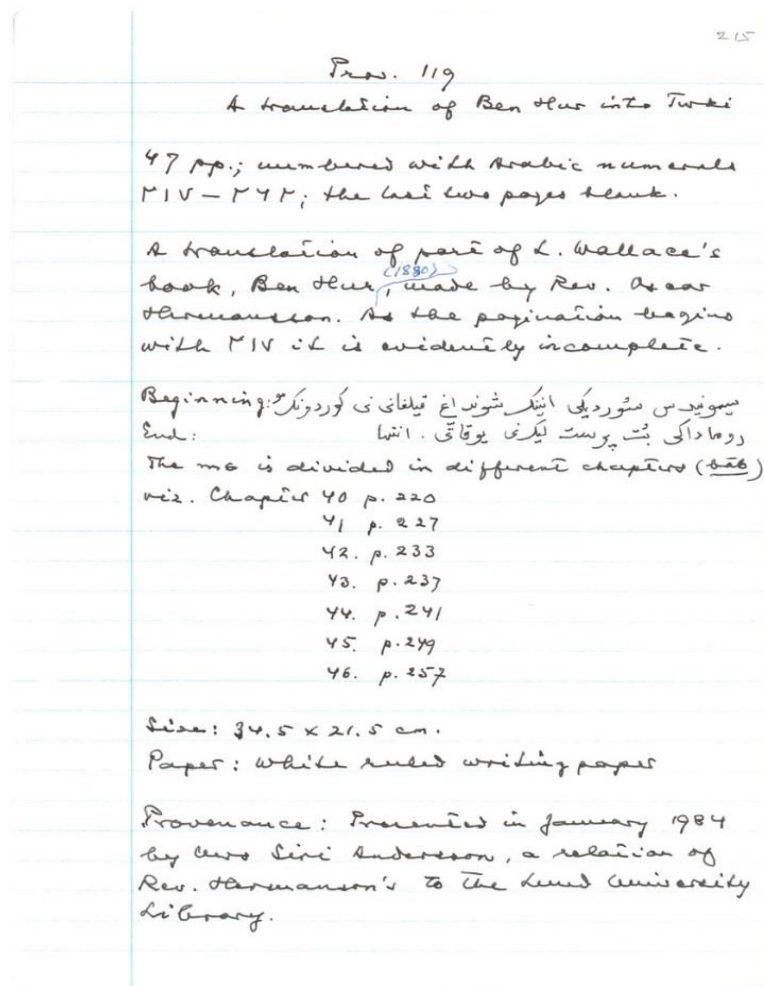 215
Prov. 119
A translation of Ben Hur into Turki
47 pp.; numbered with Arabic numerals
٢١٧ – ٢٦٢; the last two pages blank.
A translation of part of L. Wallace's
(1880)
book, Ben Hur, made by Rev. Oscar
Hermansson. As the pagination begins
with ٢١٧ it is evidently incomplete.
Beginning: سیمونیدس اینک شونداغ قیلغانی نی کوردونک
End: روماداکی بُت پرست لیکنی یوقاتی . انتها
The ms is divided in different chapters (bāb)
viz. Chapter 40 p. 220
41 p. 227
42. p. 233
43. p. 237
44. p. 241
45. p. 249
46. p. 257
Size: 34.5 x 21.5 cm.
Paper: White ruled writing paper
Provenance: Presented in January 1984
by Mrs Siri Andersson, a relation of
Rev. Hermanson's to the Lund University
Library.